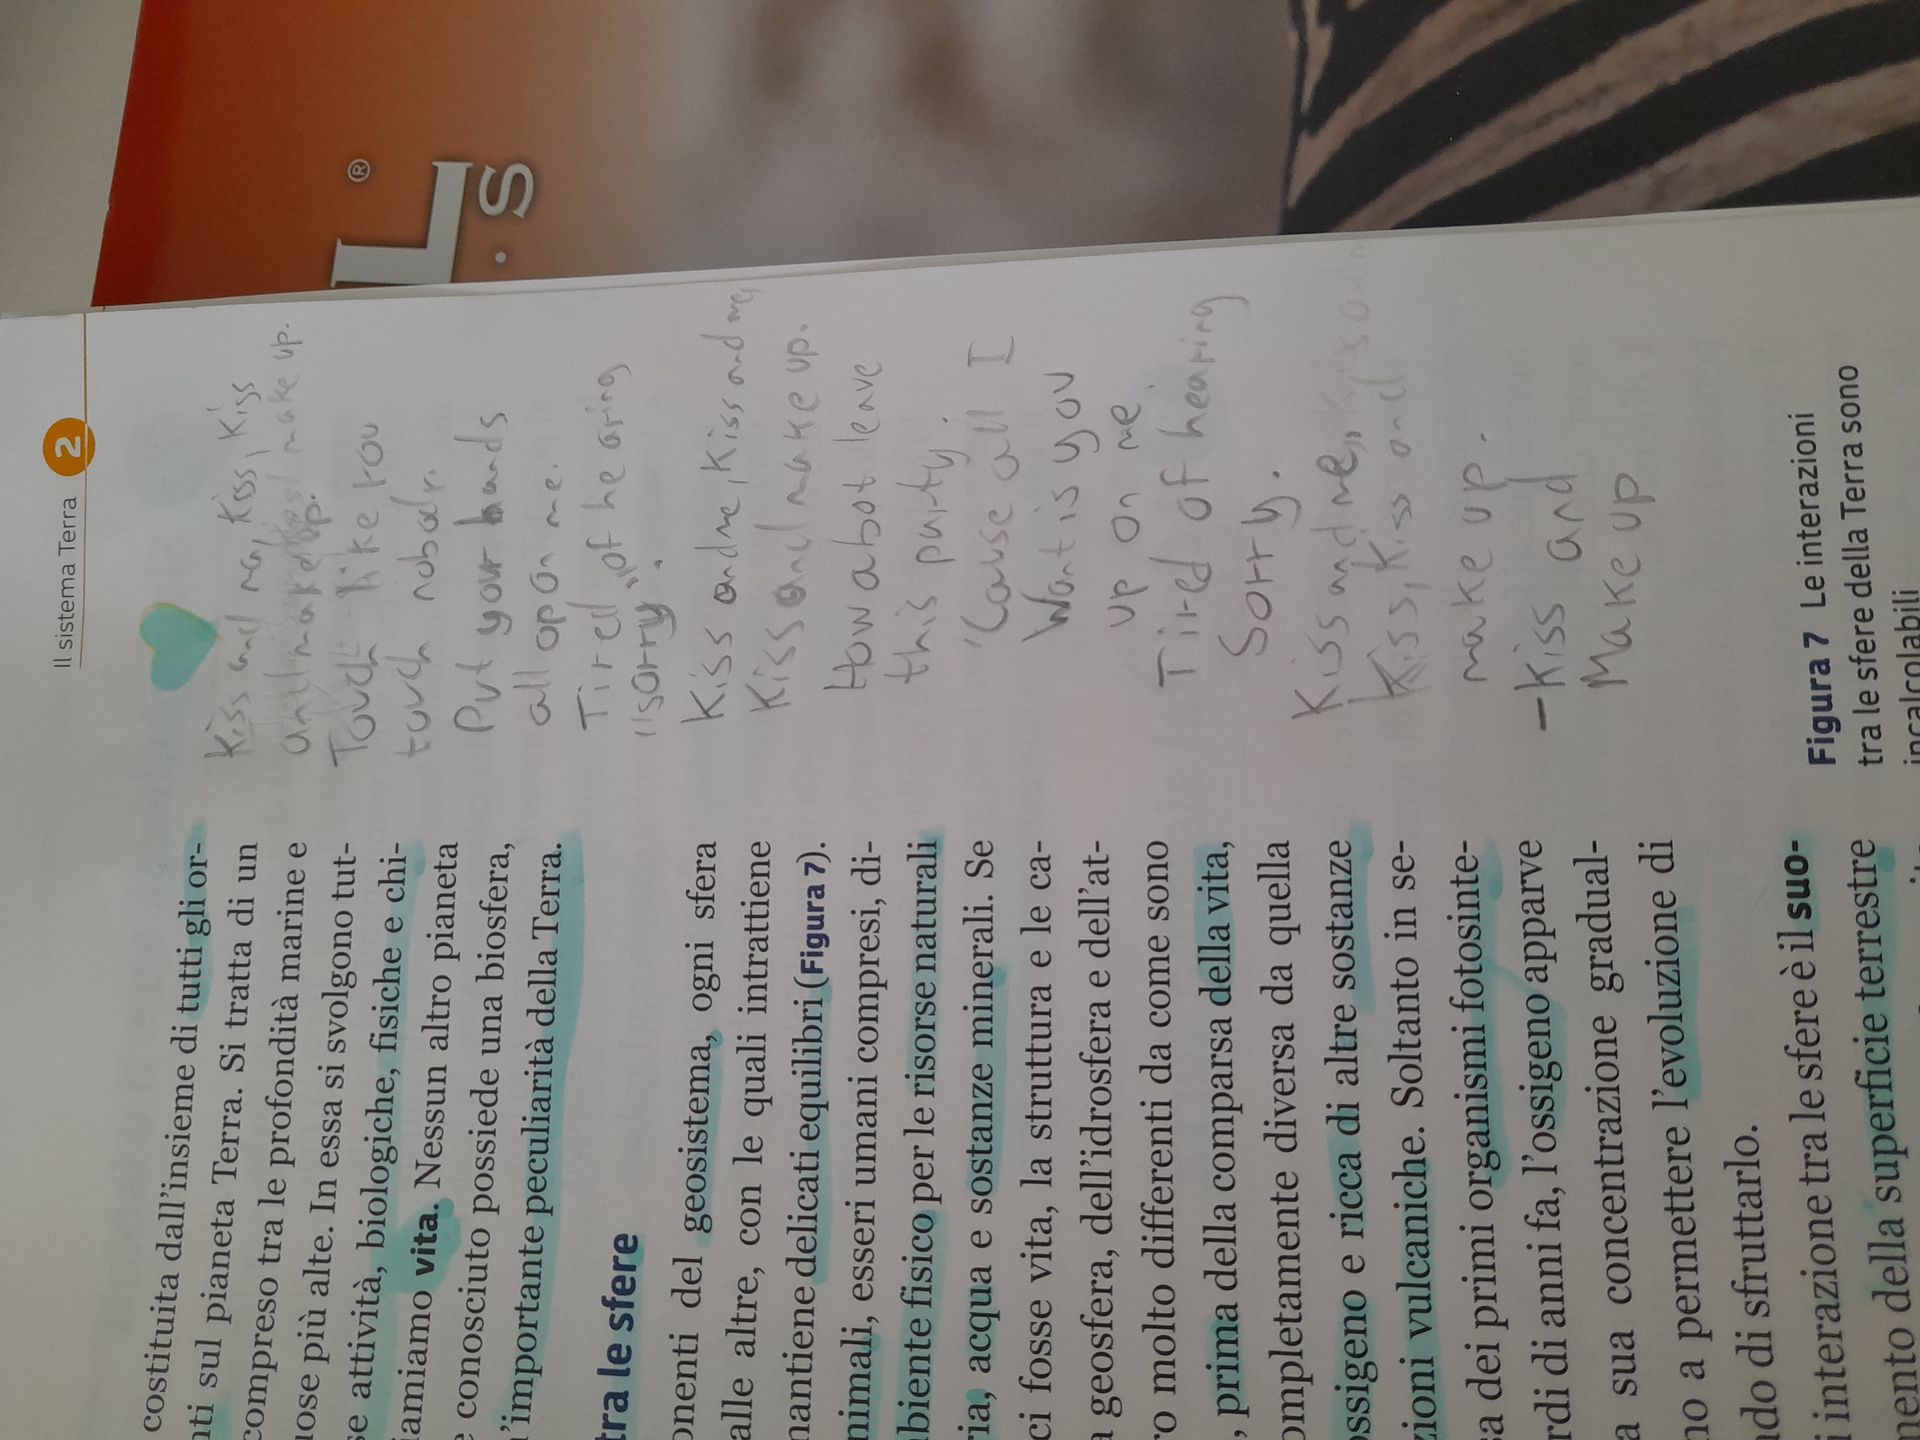 Il sistema Terra 2
L®
. S
costituita dall'insieme di tutti gli or-
nti sul pianeta Terra. Si tratta di un
compreso tra le profondità marine e
uose più alte. In essa si svolgono tut-
se attività, biologiche, fisiche e chi-
iamiamo vita. Nessun altro pianeta
e conosciuto possiede una biosfera,
l'importante peculiarità della Terra.
tra le sfere
onenti del geosistema, ogni sfera
alle altre, con le quali intrattiene
mantiene delicati equilibri (Figura 7).
nimali, esseri umani compresi, di-
mbiente fisico per le risorse naturali
ria, acqua e sostanze minerali. Se
ci fosse vita, la struttura e le ca-
a geosfera, dell'idrosfera e dell'at-
ro molto differenti da come sono
, prima della comparsa della vita,
ompletamente diversa da quella
ossigeno e ricca di altre sostanze
zioni vulcaniche. Soltanto in se-
sa dei primi organismi fotosinte-
rdi di anni fa, l'ossigeno apparve
a sua concentrazione gradual-
no a permettere l'evoluzione di
ado di sfruttarlo.
i interazione tra le sfere è il suo-
mento della superficie terrestre
Kiss and me, kiss, kiss
and make up.
Touch like you
touch nobody.
Put your hands
all upon me.
Tired "of hearing
"sorry".
Kiss and me, kiss and me,
Kiss and make up.
How abot leave
this party.
'Cause all I
Want is you
up on me
Tired of hearing
Sorry.
Kiss and me,
Kiss, kiss and
make up.
-Kiss and
Make up
Figura 7 Le interazioni
tra le sfere della Terra sono
incalcolabili